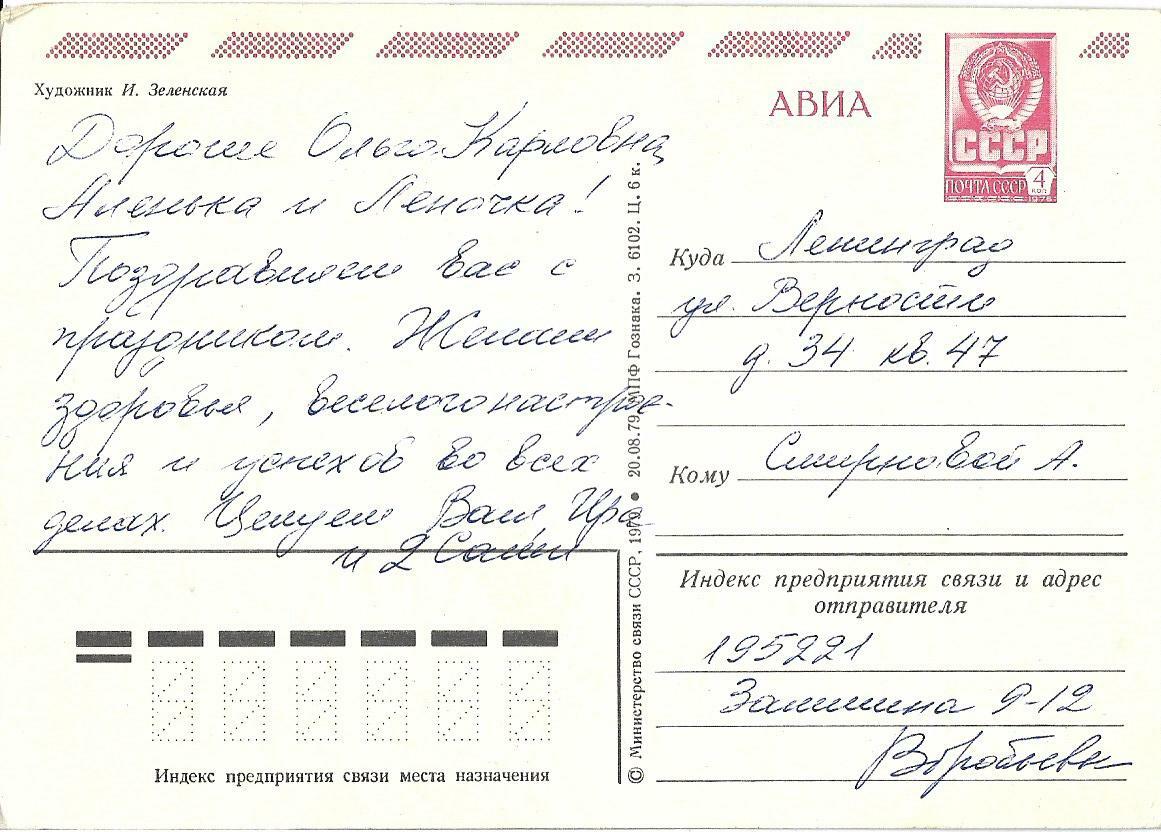 Художник И. Зеленская
АВИА
СССР
ПОЧТА СССР 4 КОП
Дорогие Ольга Карловна,
Аленька и Леночка!
Поздравляем вас с
праздником. Желаем
здоровья, веселого настрое-
ния и успехов во всех
делах. Целуем Ваши Ира
и 2 Саши
© Министерство связи СССР, 1979 ● 20.08.79. МПФ Гознака. З. 6102. Ц. 6 к.
Куда Ленинград
ул. Верности
д. 34 кв. 47
Кому Смирновой А.
Индекс предприятия связи и адрес
отправителя
195221
Замшина 9-12
Воробьевы
Индекс предприятия связи места назначения